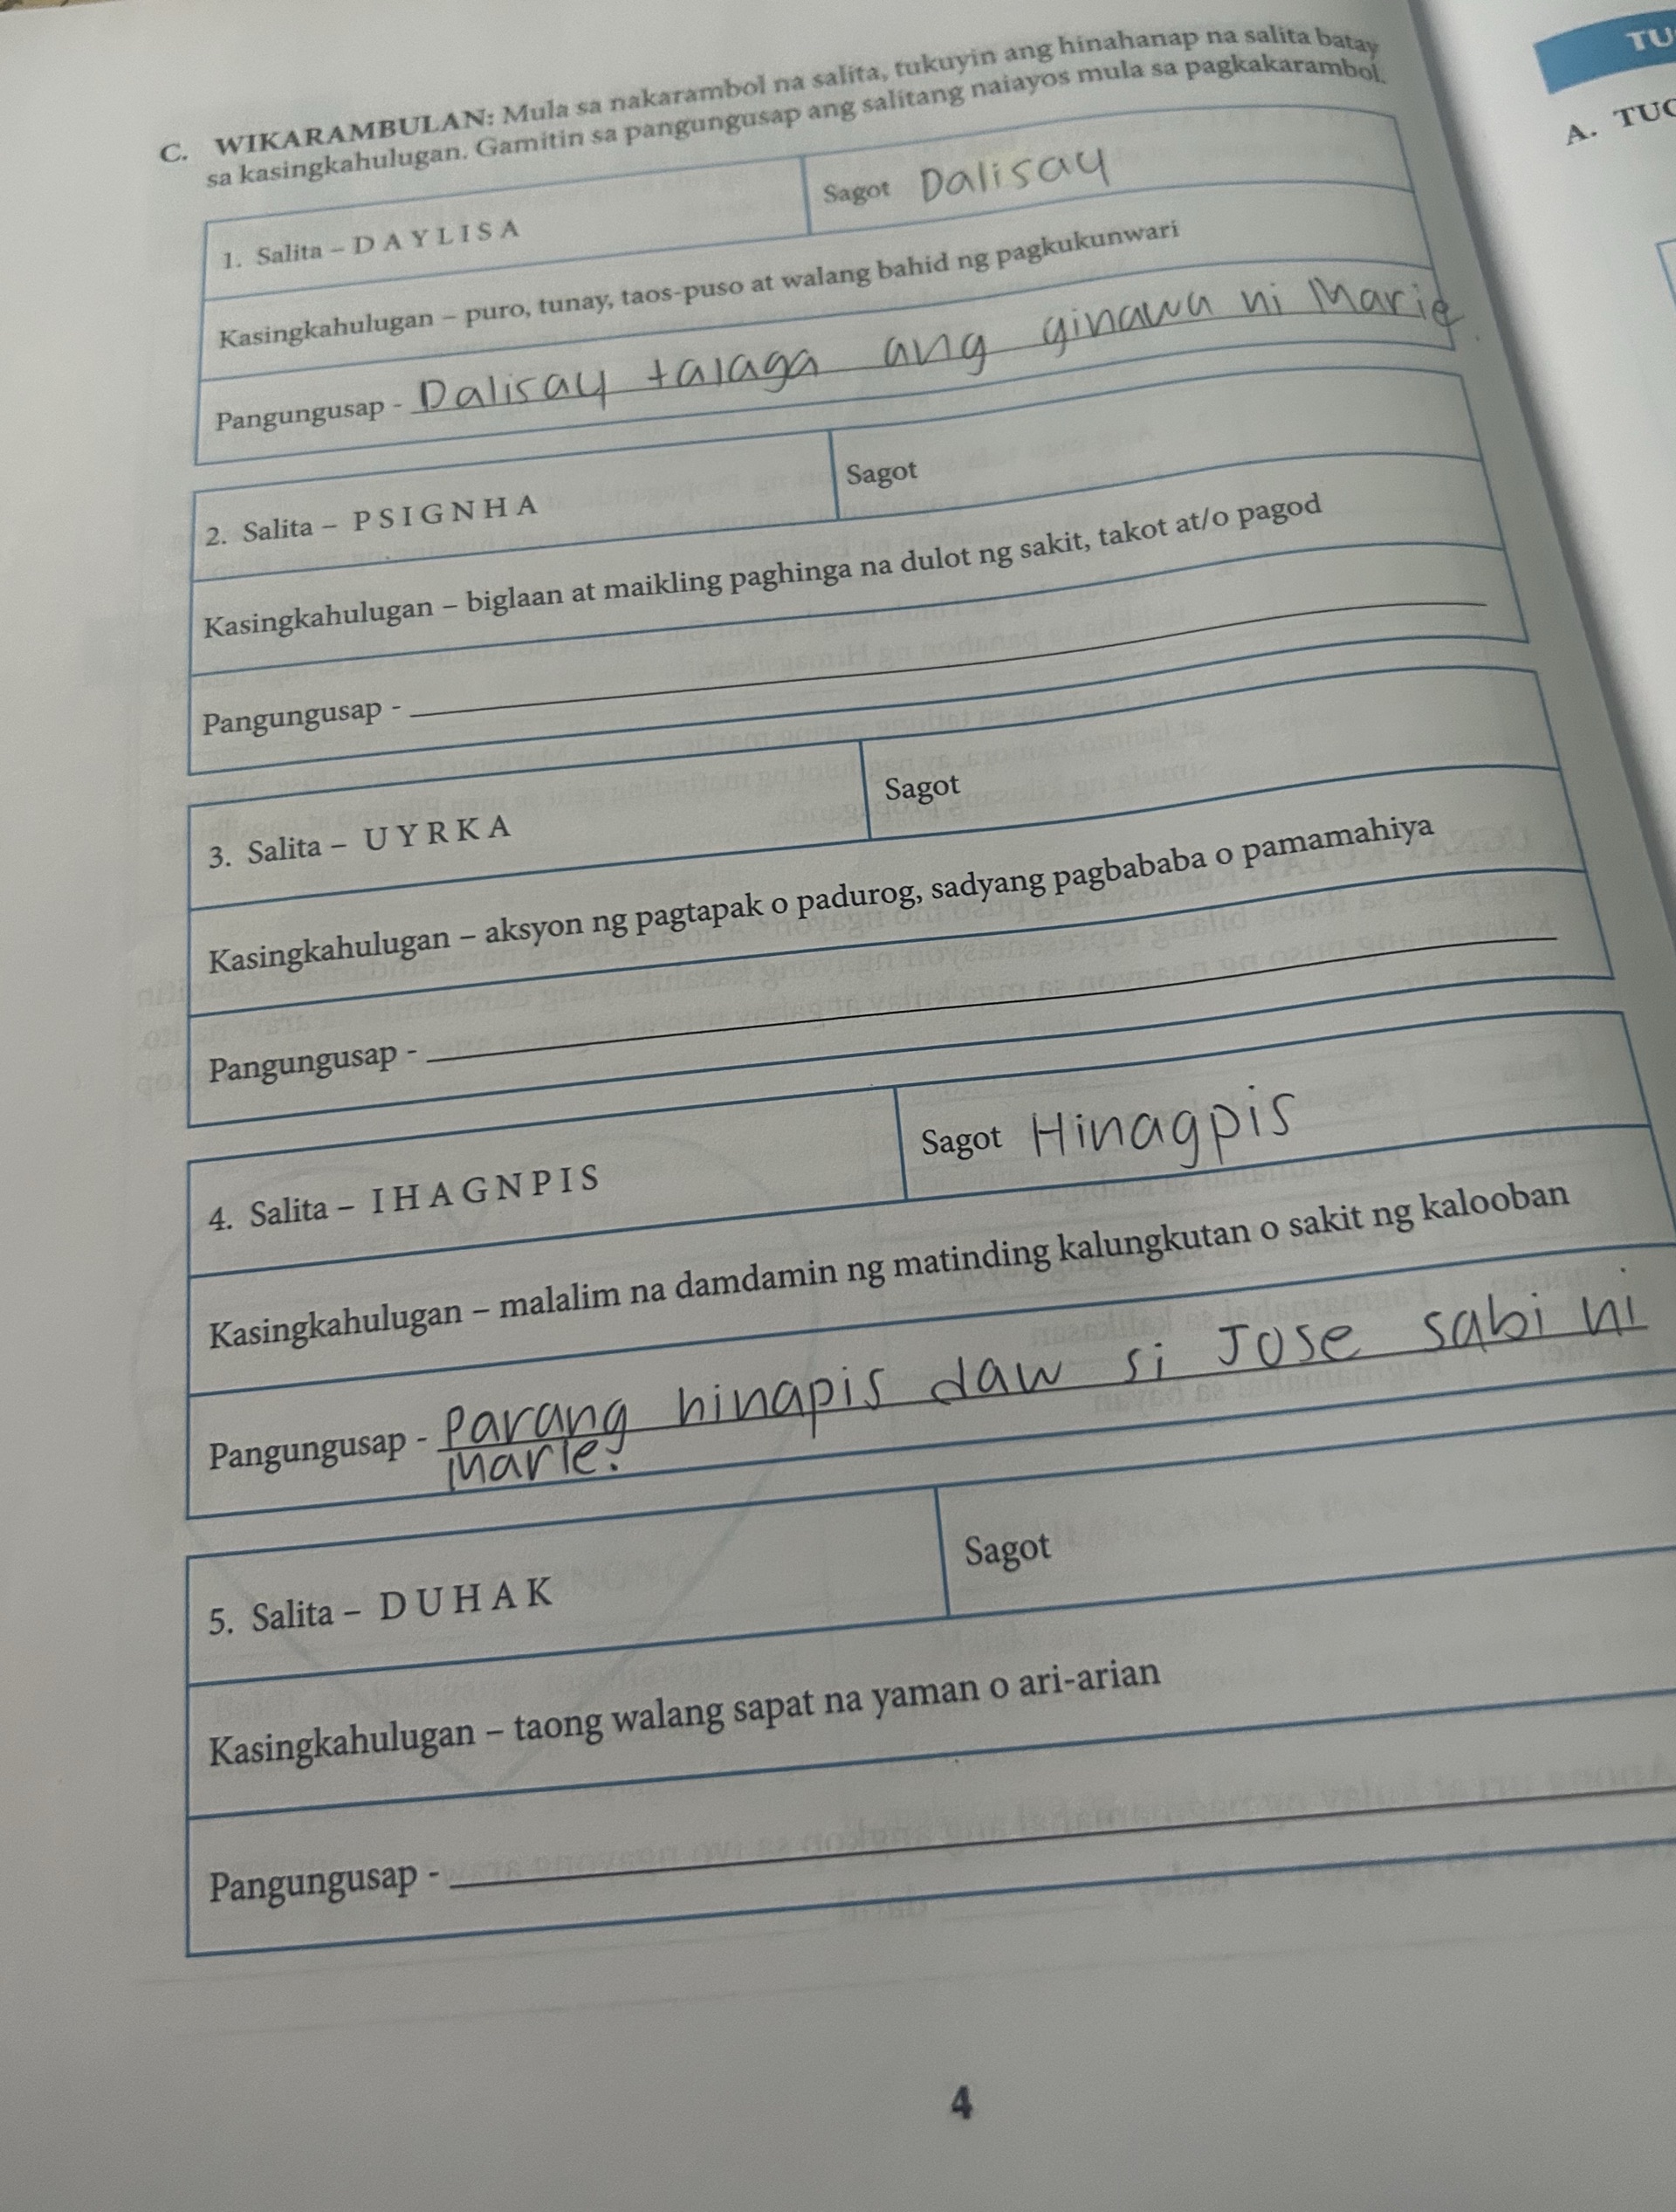 C. WIKARAMBULAN: Mula sa nakarambol na salita, tukuyin ang hinahanap na salita batay
sa kasingkahulugan. Gamitin sa pangungusap ang salitang naiayos mula sa pagkakarambol.
1. Salita – D A Y L I S A
Sagot Dalisay
Kasingkahulugan – puro, tunay, taos-puso at walang bahid ng pagkukunwari
Pangungusap - Dalisay talaga ang ginawa ni Marie.
2. Salita – P S I G N H A
Sagot
Kasingkahulugan – biglaan at maikling paghinga na dulot ng sakit, takot at/o pagod
Pangungusap -
3. Salita – U Y R K A
Sagot
Kasingkahulugan – aksyon ng pagtapak o padurog, sadyang pagbababa o pamamahiya
Pangungusap -
4. Salita – I H A G N P I S
Sagot Hinagpis
Kasingkahulugan – malalim na damdamin ng matinding kalungkutan o sakit ng kalooban
Pangungusap - Parang hinapis daw si Jose sabi ni
Marie.
5. Salita – D U H A K
Sagot
Kasingkahulugan – taong walang sapat na yaman o ari-arian
Pangungusap -
4
A.